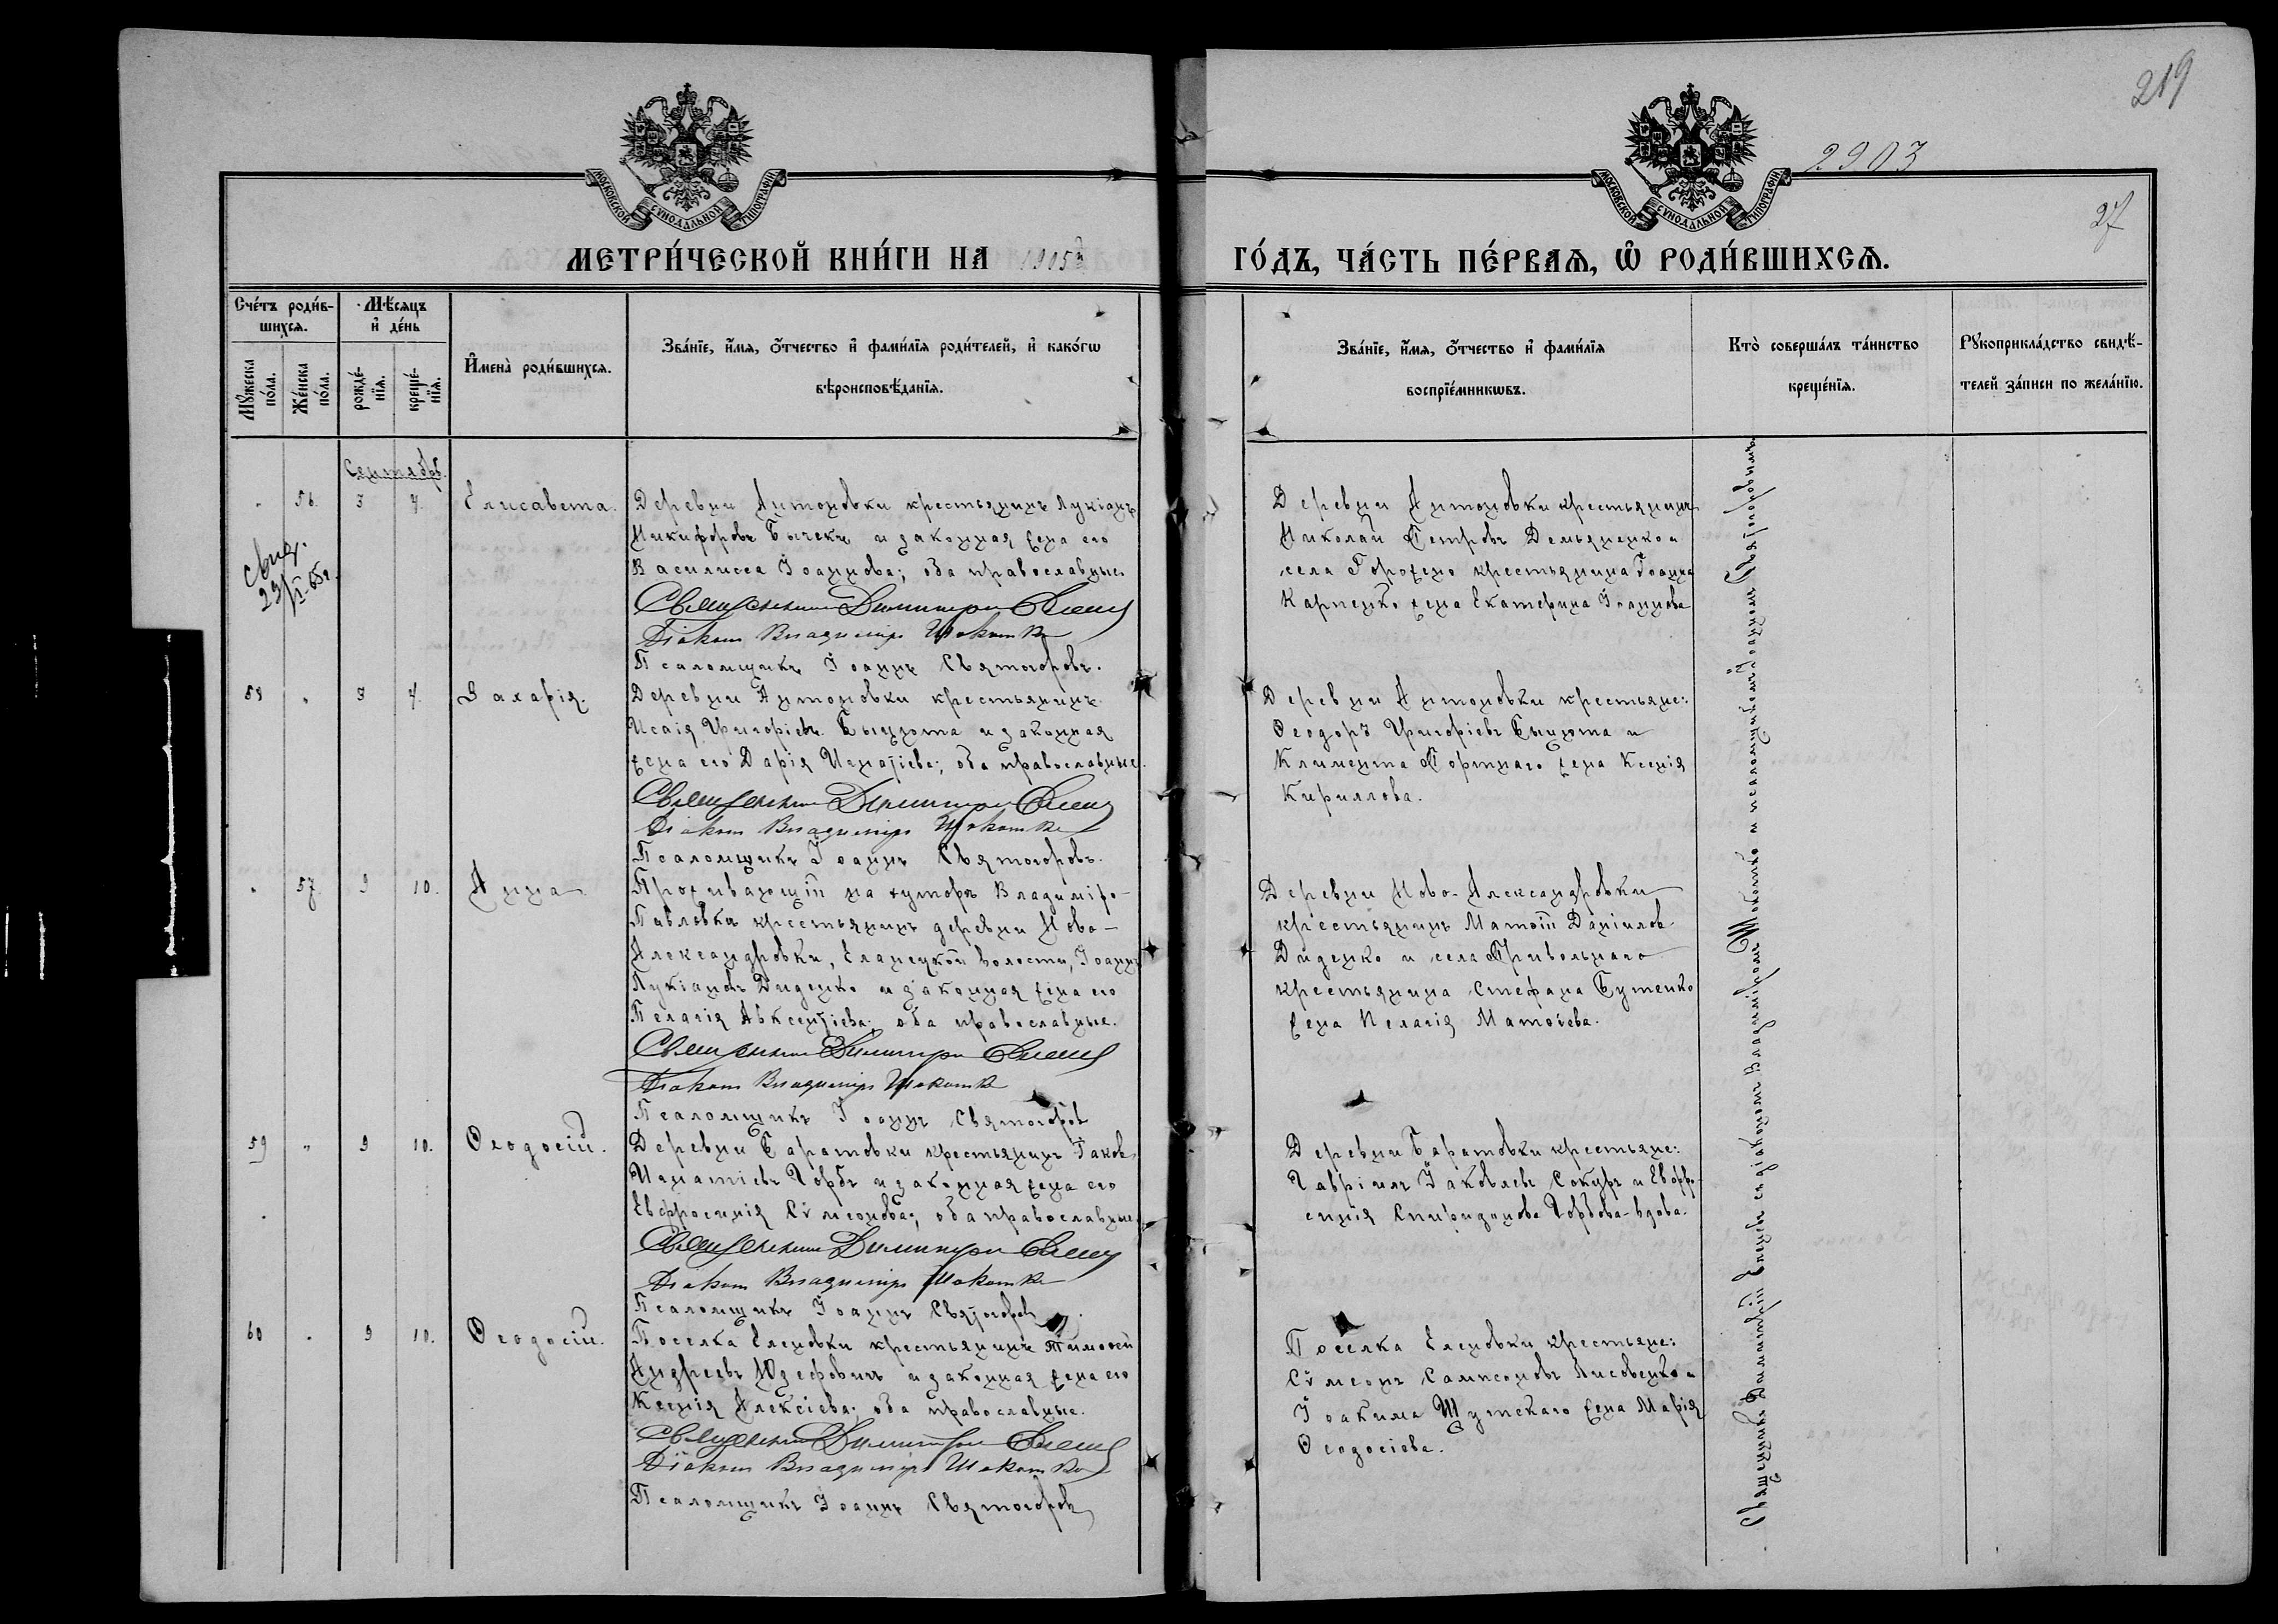 219
2903
27
МОСКОВСКОЙ СѴНОДАЛЬНОЙ ТИПОГРАФІИ
МОСКОВСКОЙ СѴНОДАЛЬНОЙ ТИПОГРАФІИ
МЕТРИ́ЧЕСКОЙ КНИ́ГИ НА 1905й
ГО́ДЪ, ЧА́СТЬ ПЕ́РВАѦ, Ѡ҆ РОДИ́ВШИХСѦ.
Сче́тъ роди́в-
шихсѧ.
Мꙋ́жеска по́ла.
Же́нска по́ла.
Мѣ́сѧцъ
и҆ де́нь
рожде́-
нїѧ.
креще́-
нїѧ.
И҆мена̀ роди́вшихсѧ.
Зва́нїе, и҆́мѧ, ѻ҆́тчество и҆ фами́лїѧ роди́телей, и҆ како́гѡ
вѣроисповѣ́данїѧ.
Зва́нїе, и҆́мѧ, ѻ҆́тчество и҆ фами́лїѧ
воспрїе́мникѡвъ.
Кто̀ соверша́лъ та́инство
креще́нїѧ.
Рꙋкоприкла́дство свидѣ́-
телей за́писи по жела́нїю.
Сентябрь.
" 56. 3 7. Елисавета.
Деревни Антоновки крестьянинъ Лукіанъ
Никифоровъ Бычекъ и законная жена его
Василисса Іоаннова; оба православные
Священникъ Димитрій
Діаконъ Владиміръ Шокотко
Псаломщикъ Іоаннъ Святогоровъ.
Деревни Антоновки крестьянинъ
Николай Петровъ Демьяненко и
села Горожено крестьянина Іоанна
Карпенко жена Екатерина Іоаннова
Свид.
58 " 3 7. Захарія.
Деревни Антоновки крестьянинъ
Исаія Григоріевъ Бындюта и законная
жена его Дарія Игнатіева; оба православные.
Священникъ Димитрій
Діаконъ Владиміръ Шокотко
Псаломщикъ Іоаннъ Святогоровъ.
Деревни Антоновки крестьяне:
Ѳеодоръ Григоріевъ и
Климента Портнаго жена Ксенія
Кириллова.
" 57. 9 10. Анна
Проживающій на хуторѣ Владиміро-
Павловкѣ крестьянинъ деревни Ново-
Александровки, Еланецкой волости, Іоаннъ
Лукіановъ Диденко и законная жена его
Пелагія Авксентіева; оба православные.
Священникъ Димитрій
Діаконъ Владиміръ Шокотко
Псаломщикъ Іоаннъ Святогоровъ
Деревни Ново-Александровки
крестьянинъ Матѳій Даніиловъ
Диденко и села Привольнаго
крестьянина Стефана Бутенко
жена Пелагія Матѳіева.
59 " 9 10. Ѳеодосій.
Деревни Баратовки крестьянинъ Іаковъ
Игнатіевъ Горбъ и законная жена его
Евфросинія Сѵмеонова; оба православные
Священникъ Димитрій
Діаконъ Владиміръ Шокотко
Псаломщикъ Іоаннъ Святогоровъ
Деревни Баратовки крестьяне:
Гавріилъ Іаковлевъ Сокуръ и Евфро-
синія Спиридонова Горбова-вдова.
60 " 9 10. Ѳеодосій.
Поселка Еленовки крестьянинъ Тимоѳей
Андреевъ Юзефовичъ и законная жена его
Ксенія Алексіева; оба православные.
Священникъ Димитрій
Діаконъ Владиміръ Шокотко
Псаломщикъ Іоаннъ Святогоровъ
Поселка Еленовки крестьяне:
Сѵмеонъ Сампсоновъ Лисовенко и
Іоакима Шутскаго жена Марія
Ѳеодосіева.
Священникъ Димитрій съ діакономъ Владиміромъ Шокотко и псаломщикомъ Іоанномъ Святогоровымъ